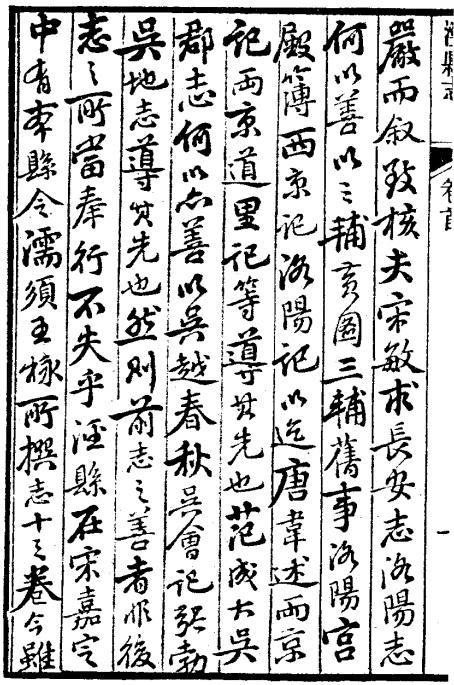 涇縣志 卷首 一
嚴而叙致核夫宋敏求長安志洛陽志
何以善以三輔黄圖三輔舊事洛陽宮
殿簿西京記洛陽記以迄唐韋述兩京
記兩京道里記等導其先也范成大吳
郡志何以亦善以吳越春秋吳會記張勃
吳地志導其先也然則前志之善者非後
志之所當奉行不失乎涇縣在宋嘉定
中有本縣令濡須王栐所撰志十三卷今雖